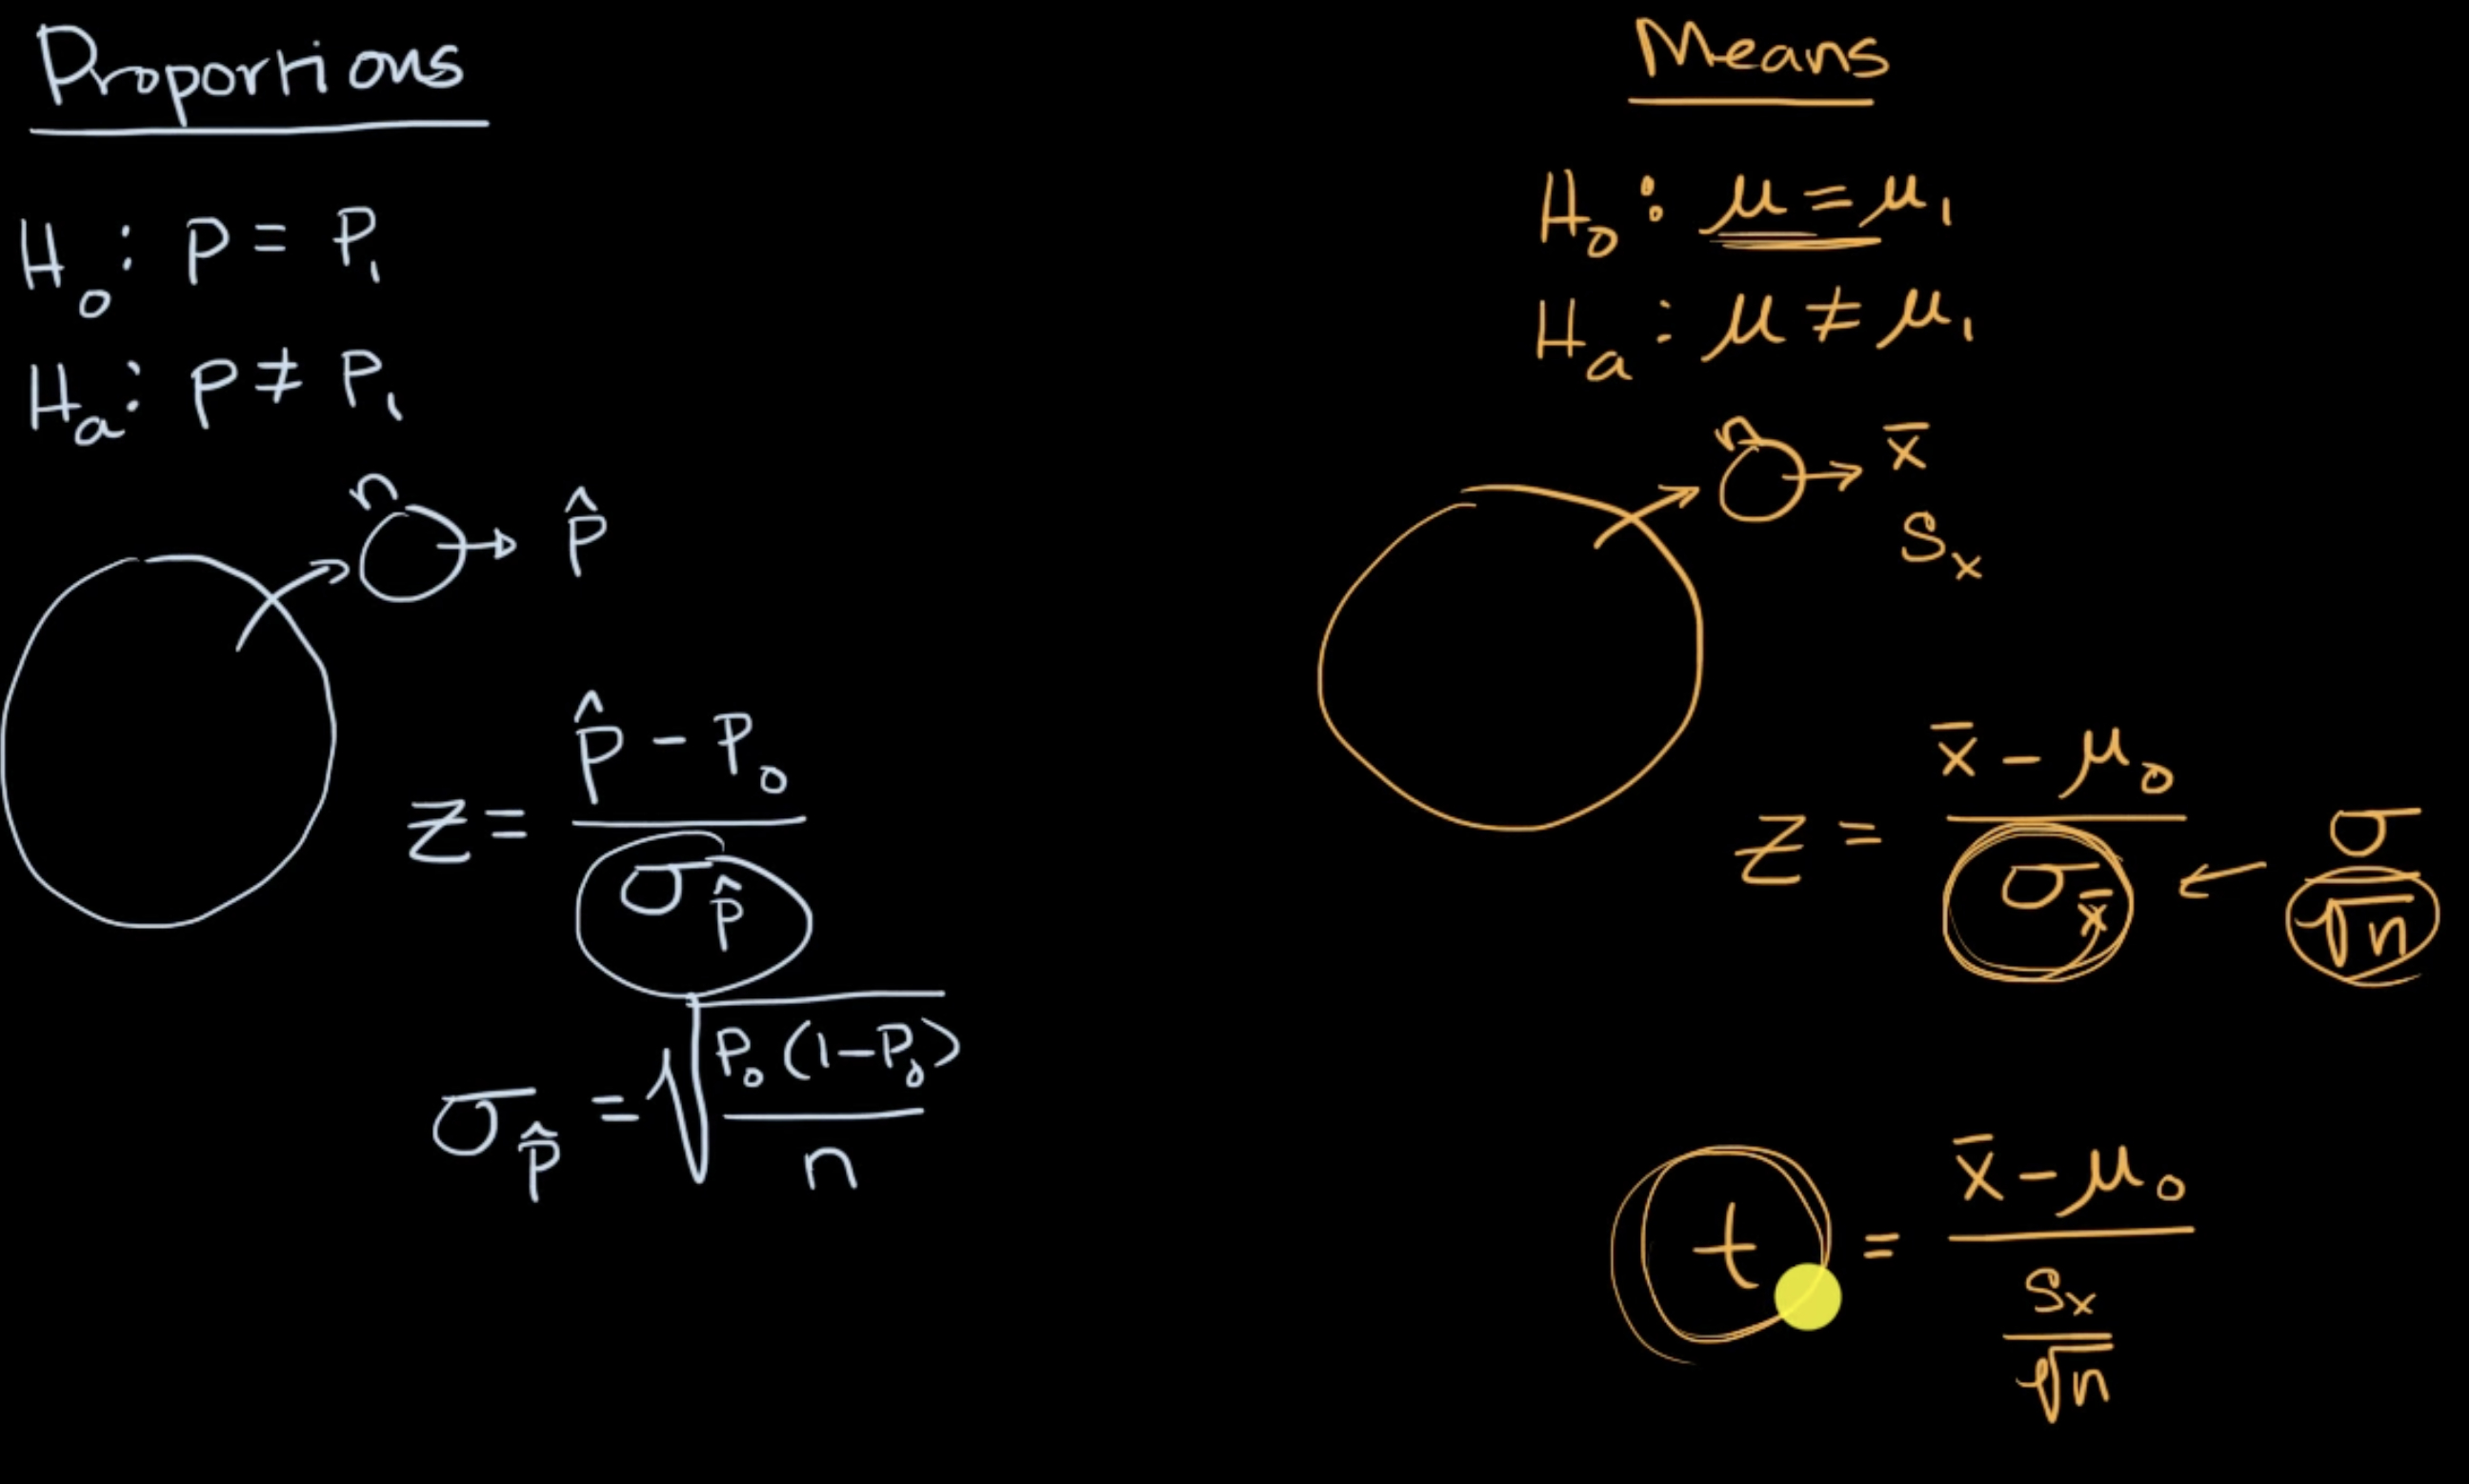 Proportions
H₀: p = P₁
Hₐ: p ≠ P₁
n
p̂
z = (p̂ - P₀) / σ_p̂
σ_p̂ = √(P₀(1-P₀) / n)
Means
H₀: μ = μ₁
Hₐ: μ ≠ μ₁
n
x̄
Sₓ
z = (x̄ - μ₀) / σ_x̄ ← σ / √n
t = (x̄ - μ₀) / (Sₓ / √n)